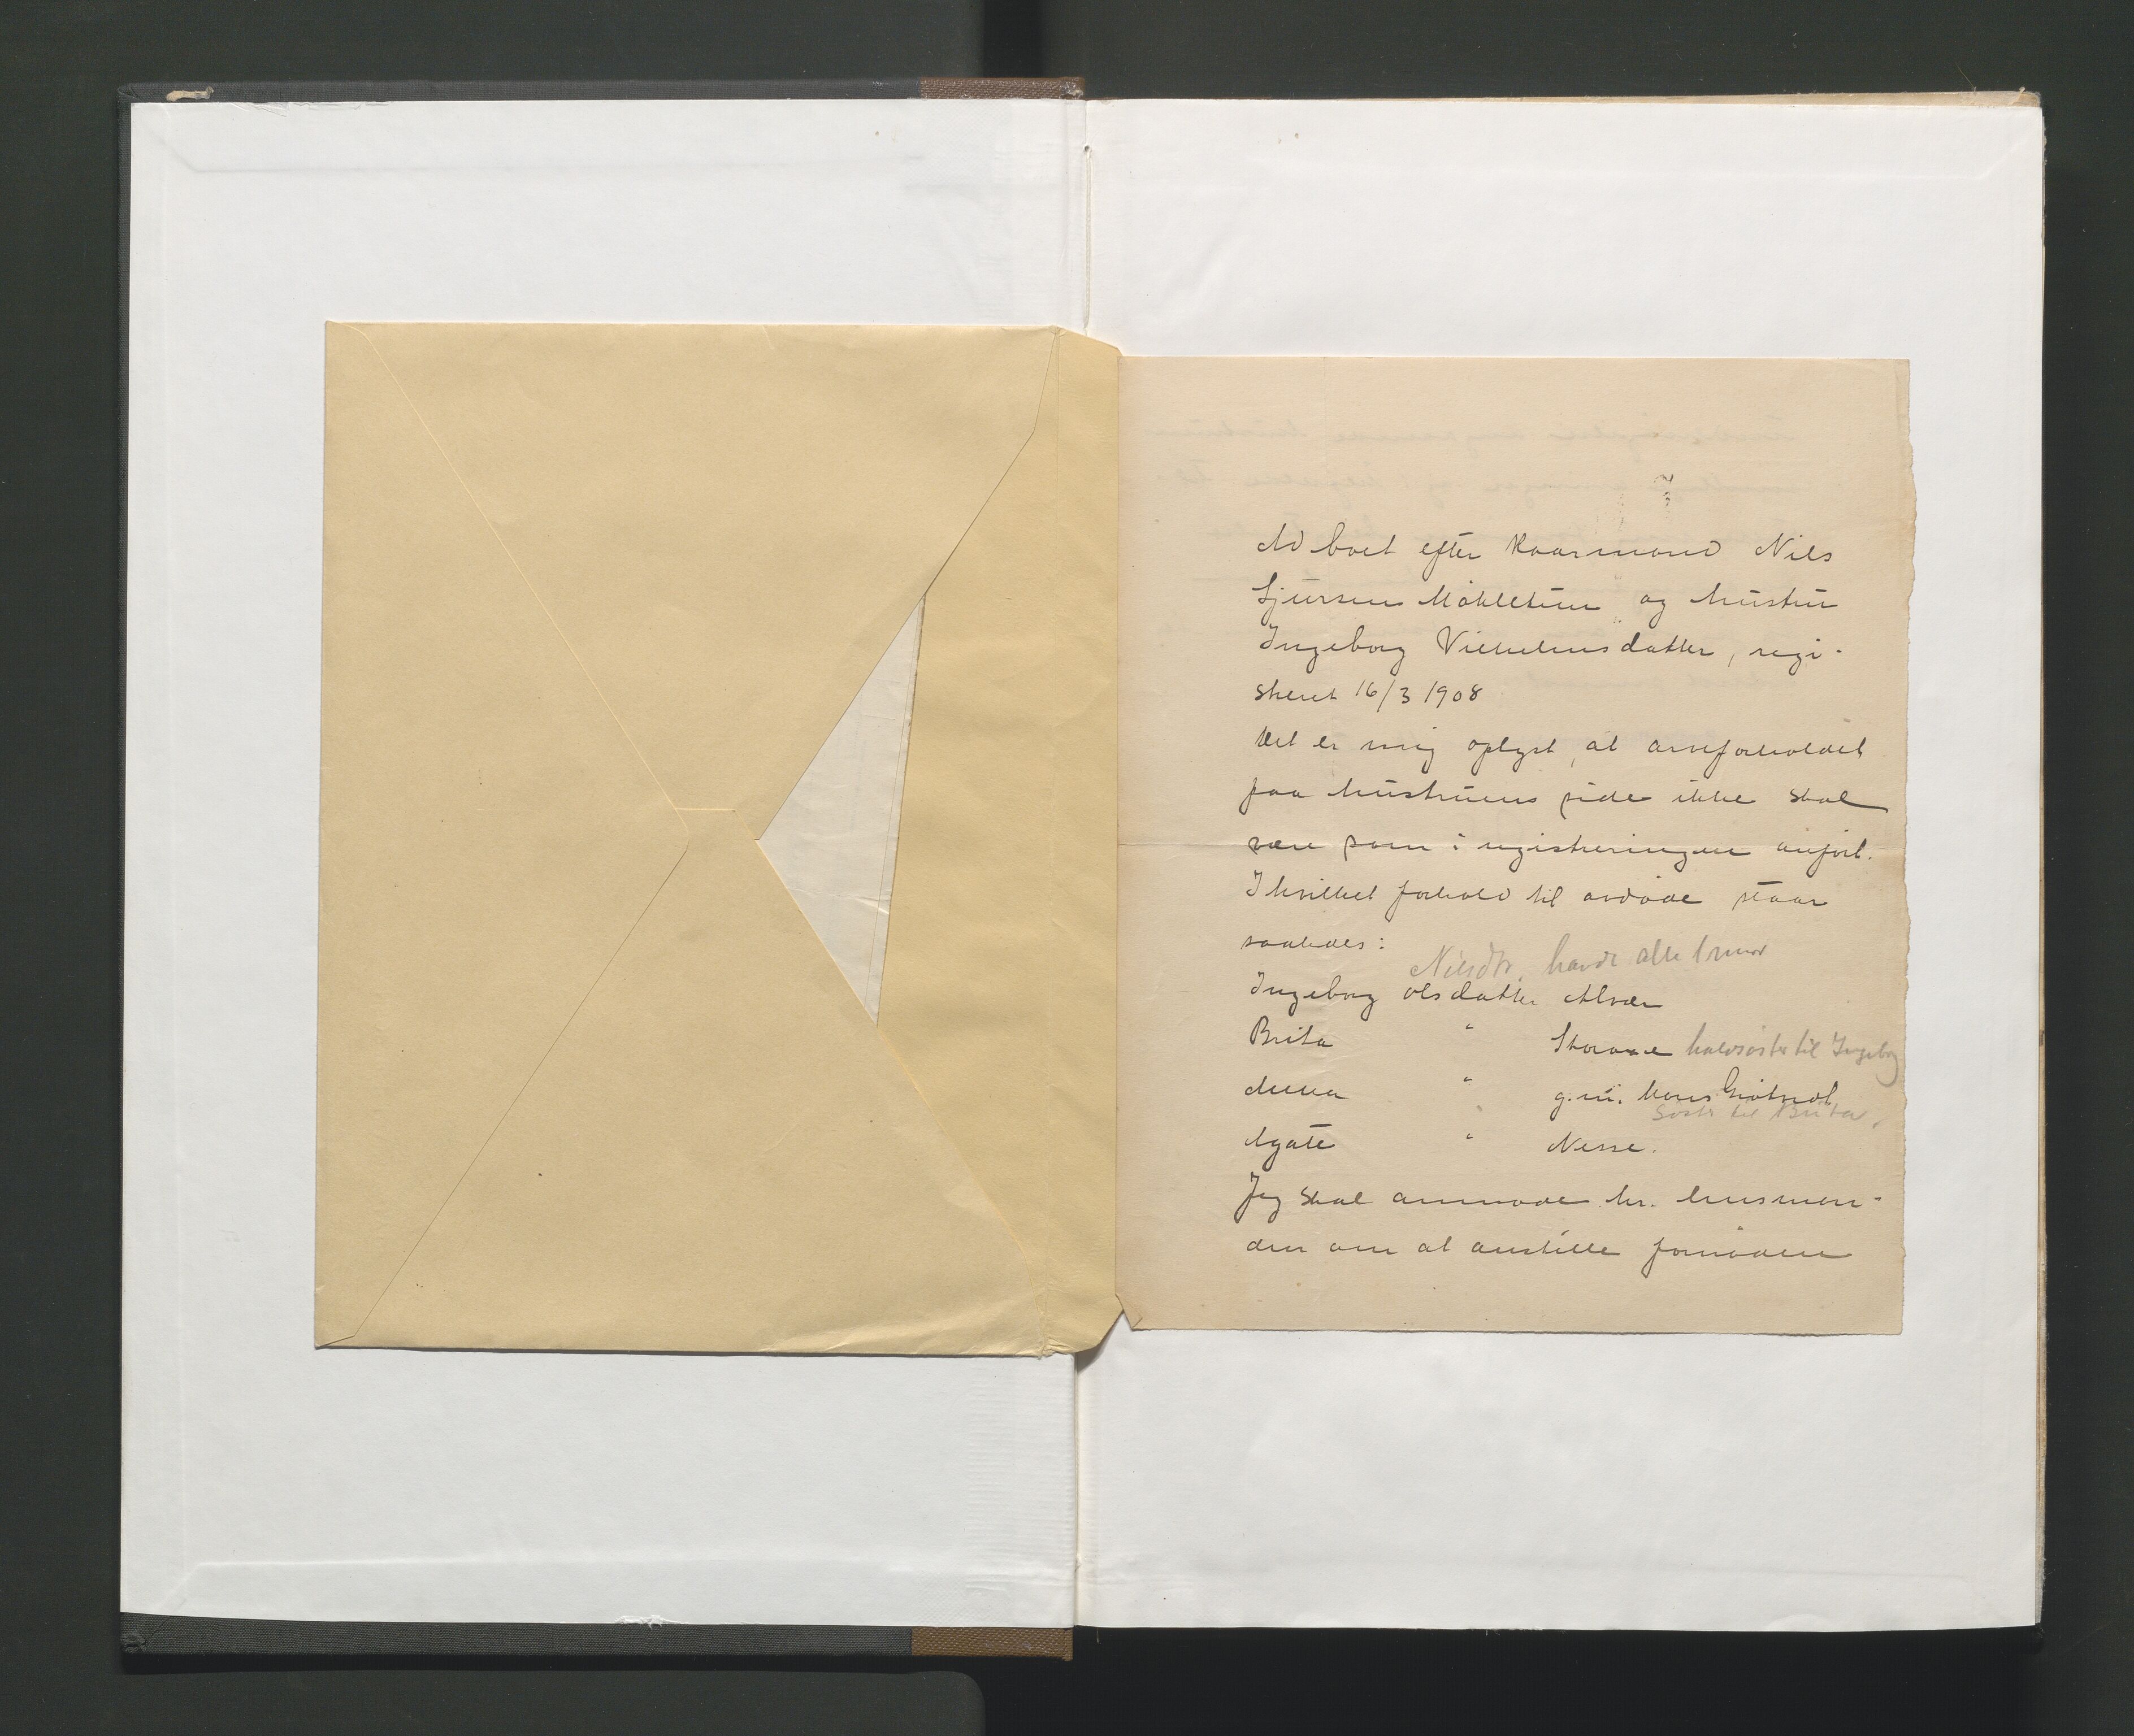 Ad boet efter Kaarmand Nils
Sjursen Møkletun og hustru
Ingeborg Vilhelmsdatter, regi-
streret 16/3 1908
Det er mig oplyst, at arveforholdet
paa hustruens side ikke skal
være som i registreringen anført.
I hvilket forhold til avdøde staar
saaledes:
Nilsdtr. havde alle
Ingeborg Olsdatter Alvær
Brita " halvsøster til Ingeborg
Anna " g.m. Hans
Søster til Brita.
Agate " Nesse.
Jeg skal anmode hr. lensman-
den om at anstille fornøden